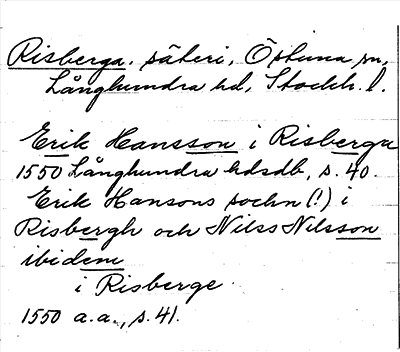 Risberga, säteri, Östuna sn,
Långhundra hd, Stockh. l.
Erik Hansson i Risberga
1550 Långhundra hdsdb, s. 40.
Erik Hansons sochn (!) i
Risbergh och Nilss Nilsson
ibidem
i Risberge
1550 a.a., s. 41.